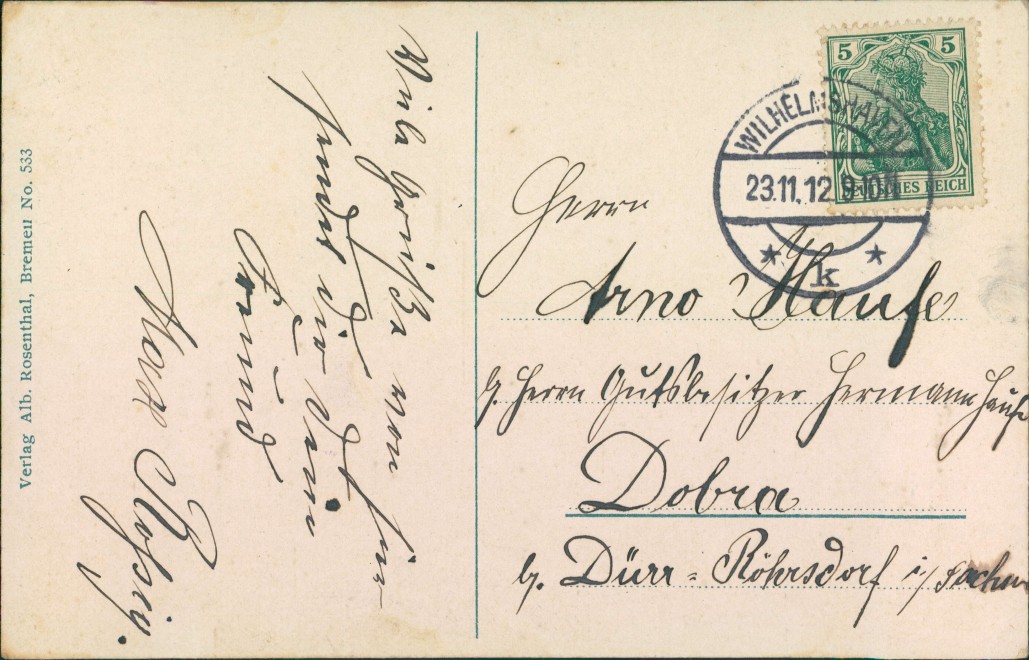 Verlag Alb. Rosenthal, Bremen No. 533
Viele Grüße von hier
sendet dir dein
Freund
Max Roßig.
5 5
DEUTSCHES REICH
WILHELMSHAVEN
23.11.12 9-10 N
* k *
Herrn
Arno Haufe
b. Herrn Gutsbesitzer Hermann Haufe
Dobra
b. Dürr-Röhrsdorf i/ Sachsen